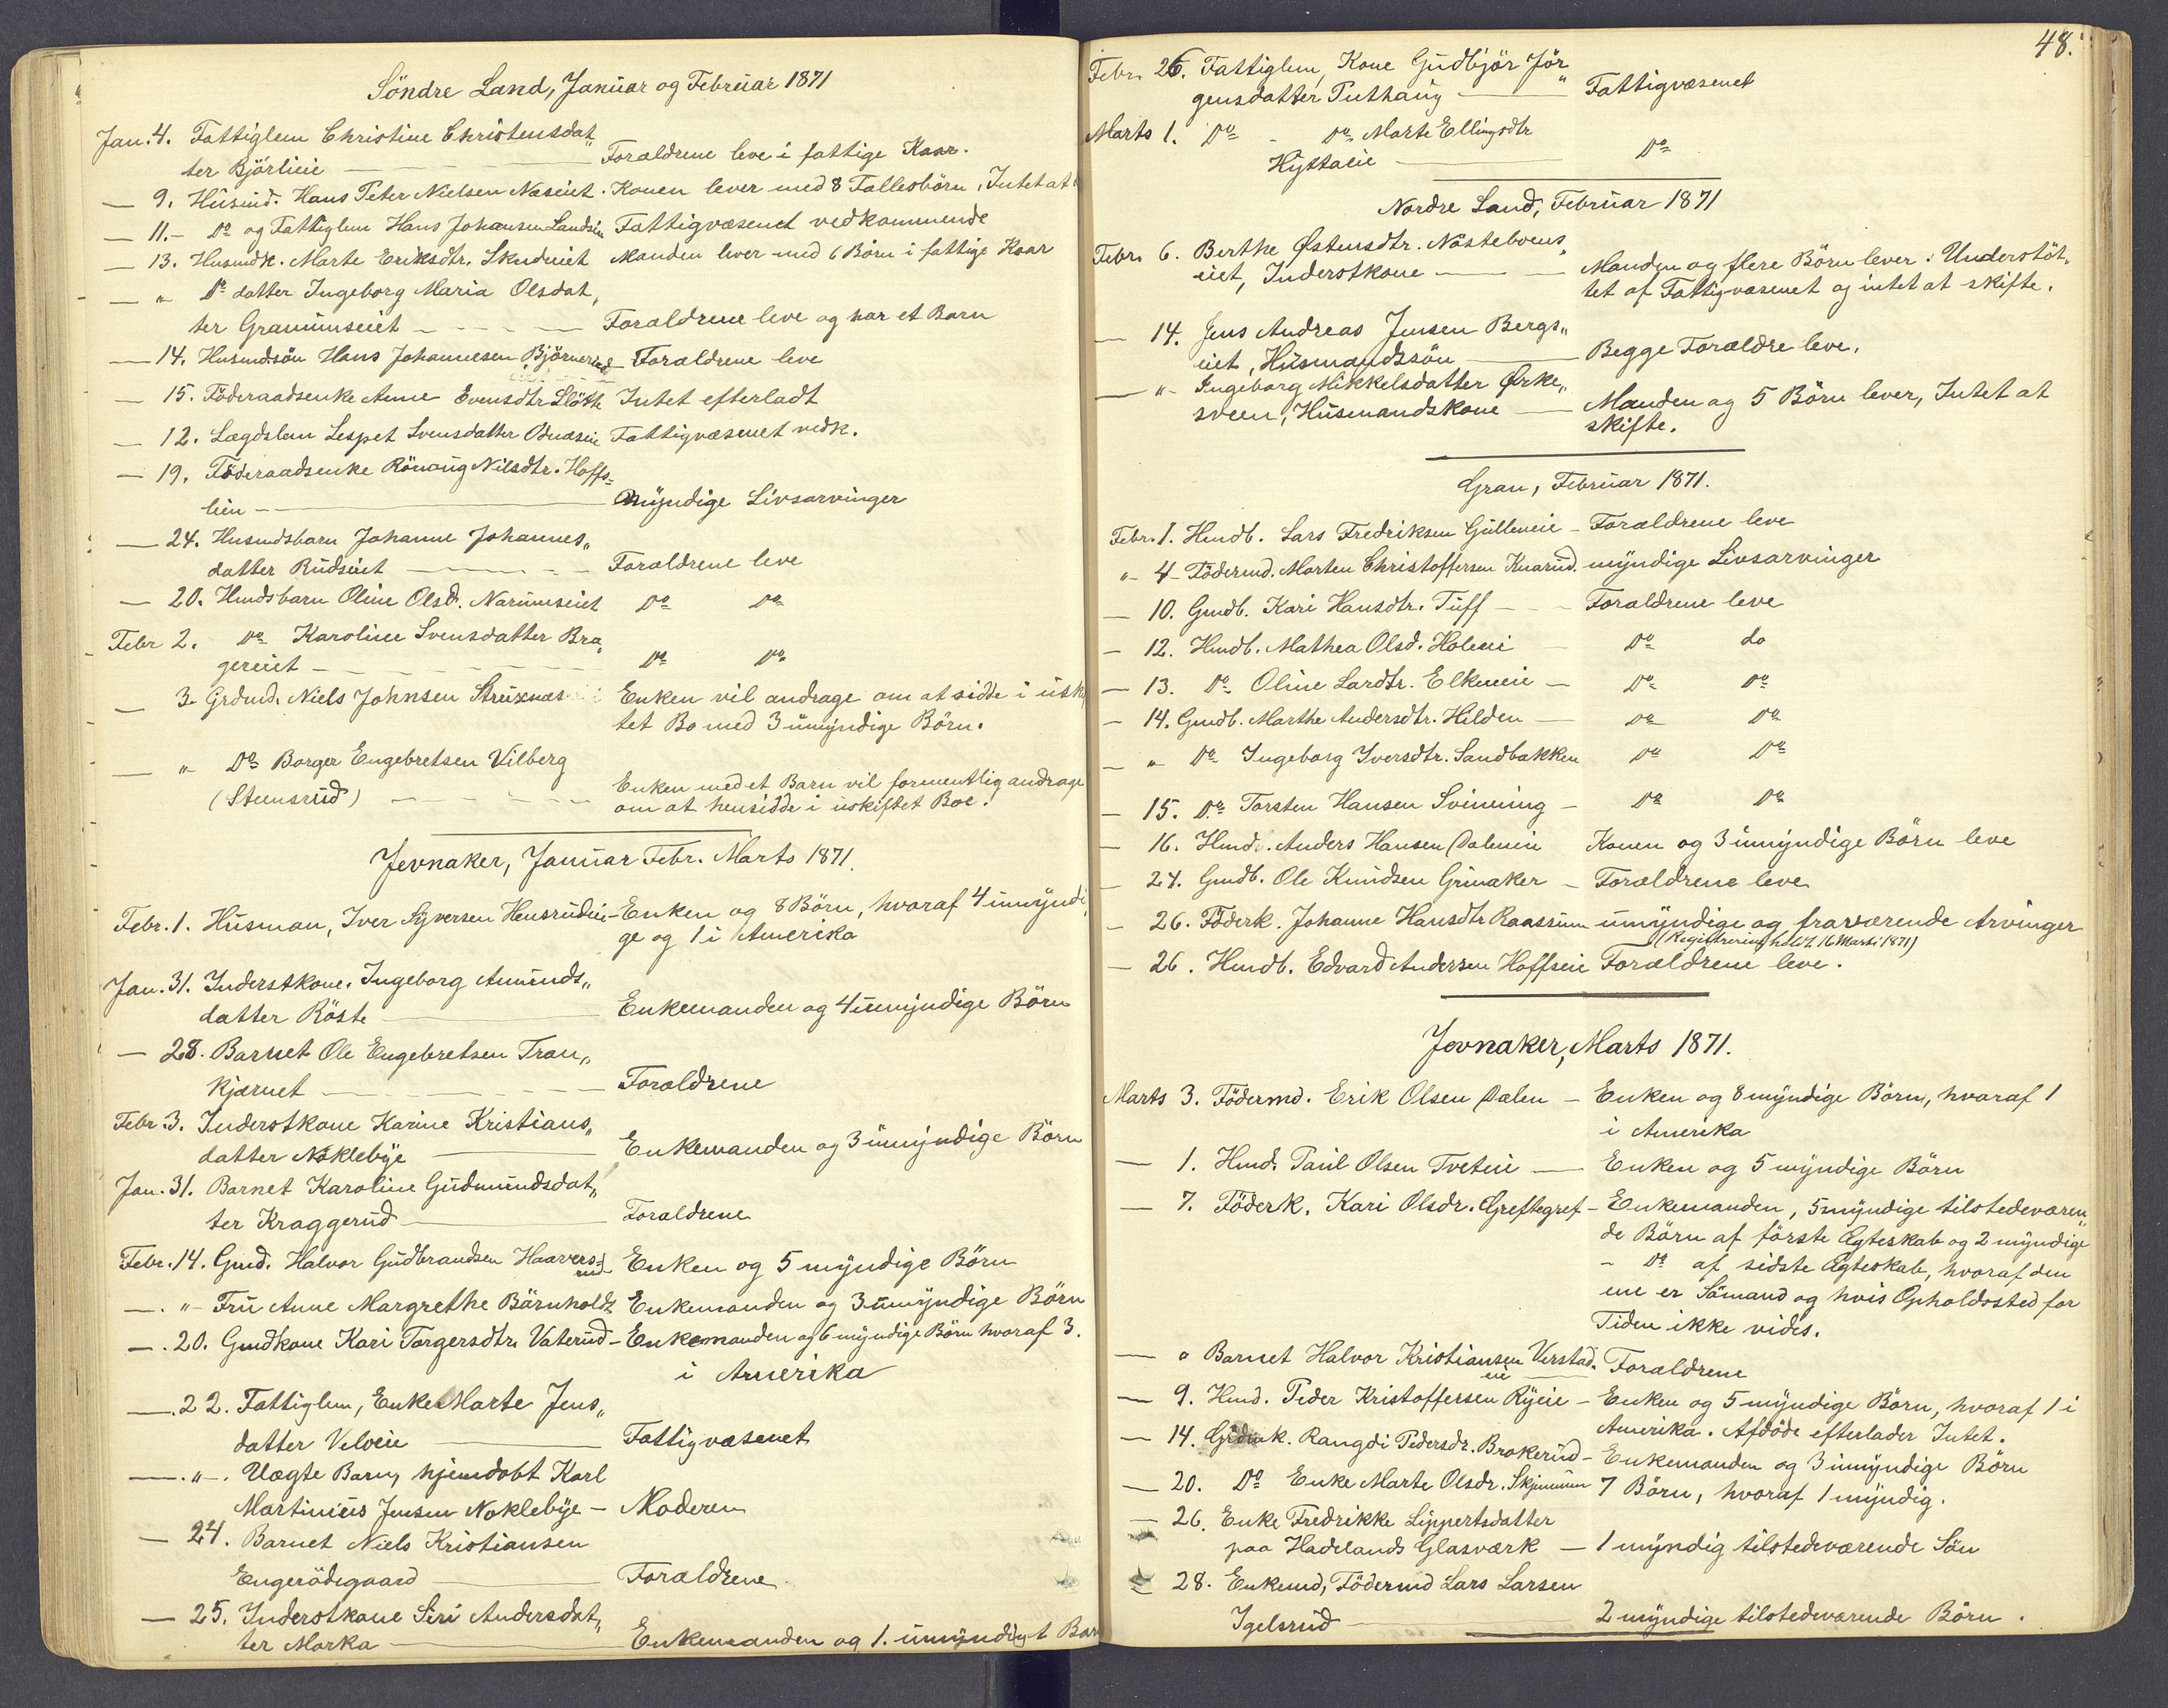 Söndre Land, Januar og Februar 1871
Jan. 4. Fattiglem Christine Christensdat„
ter Björlieie — Forældrene leve i fattige Kaar.
— 9. Husmd. Hans Peter Nielsen Næseiet. Konen lever med 8 Fællesbörn, Intet at
— 11. — Do og Fattiglem Hans Johansen Fattigvæsenet vedkommende
— 13. Husmdk. Marte Eriksdtr. Manden lever med 6 Börn i fattige Kaar
— " Do datter Ingeborg Maria Olsdat„
ter Granumseiet — Forældrene leve og har et Barn
— 14. Husmdsön Hans Johannesen Björnerud — Forældrene leve
— 15. Föderaadsenke Anne Evensdtr Slöth Intet efterladt
— 12. Lægdslem Lespet Svensdatter Fattigvæsenet vedk.
— 19. Föderaadsenke Rönnaug Nilsdtr. Hoffs=
lien — Myndige Livsarvinger
— 24. Husmdsbarn Johanne Johannes„
datter Rudseiet — Forældrene leve
— 20. Hmdsbarn Oline Olsd. Narumseiet Do Do
Febr 2. Do Karoline Svensdatter Bra„
gereiet — Do Do
— 3. Grdmd. Niels Johnsen Struxnæs Enken vil andrage om at sidde i usk
tet Bo med 3 umyndige Börn.
— " Do Borger Engebretsen Vilberg
(Steensrud) — Enken med et Barn vil formentlig andrage
om at hensidde i uskiftet Boe.
Jevnaker, Januar Febr. Marts 1871.
Febr. 1. Husman, Iver Syversen Hensrudeie — Enken og 8 Börn, hvoraf 4 umyndi„
ge og 1 i Amerika
Jan. 31. Inderstkone. Ingeborg Amunds„
datter Röste — Enkemanden og 4 umyndige Börn
— 28. Barnet Ole Engebretsen Tran„
kjærnet — Forældrene
Febr. 3. Inderstkone Karine Kristians„
datter Noklebye — Enkemanden og 3 umyndige Börn
Jan. 31. Barnet Karoline Gudmundsdat„
ter Kraggerud — Forældrene
Febr. 14. Gmd. Halvor Gudbrandsen Haavers=
rud Enken og 5 myndige Börn
— " — Fru Anne Margrethe Bärnholdt Enkemanden og 3 umyndige Börn
— 20. Gmdkone Kari Torgersdtr. Vaterud — Enkemanden og 6 myndige Börn hvoraf 3.
i Amerika
— 22. Fattiglem, Enke Marte Jens„
datter Velveie — Fattigvæsenet
— " — Uægte Barn, hjemdøbt Karl
Martinius Jensen Noklebye — Moderen
— 24. Barnet Niels Kristiansen
Engerödegaard — Forældrene
— 25. Inderstkone Siri Andersdat„
ter Morka — Enkemanden og 1. umyndigt Barn
48.
Febr. 26. Fattiglem, Kone Gudbjör Jör„
gensdatter — Fattigvæsenet
Marts 1. Do — Do Marte Ellingsdtr
Hyttaeie — Do
Nordre Land, Februar 1871
Febr. 6. Berthe Østensdtr. Nösteboens„
eiet, Inderstkone — Manden og flere Börn lever. Understöt„
tet af Fattigvæsenet og intet at skifte.
— 14. Jens Andreas Jensen Bergs„
eiet, Husmandssön — Begge Forældre leve.
— " — Ingeborg Mikkelsdatter Ørke„
sveen, Husmandskone — Manden og 5 Börn lever, Intet at
skifte.
Gran, Februar 1871.
Febr. 1. Hmdb. Lars Fredriksen Gulleneie — Forældrene leve
" — 4 — Födermd. Morten Christoffersen Knarud. myndige Livsarvinger
— 10. Gmdb. Kari Hansdtr. Tuff — Forældrene leve
— 12. Hmdb. Mathea Olsd. Holeeie Do do
— 13. Do Oline Lardtr. Elkneeie — Do Do
— 14. Gmdb. Marthe Andersdtr. Hilden — Do Do
— " Do Ingeborg Iversdtr. Sandbakken Do Do
— 15. Do Torsten Hansen Svinning — Do Do
— 16. Hmd. Anders Hansen Daleneie Konen og 3 umyndige Börn leve
— 24. Gmdb. Ole Knudsen Grinaker — Forældrene leve
— 26. Föderk. Johanne Hansdtr Raassum umyndige og fraværende Arvinger
(Registrering holdt 16 Marts 1871)
— 26. Hmdb. Edvard Andersen Hoffseie Forældrene leve.
Jevnaker, Marts 1871.
Marts 3. Födermd. Erik Olsen Dalen — Enken og 8 myndige Börn, hvoraf 1
i Amerika
— 1. Hmd. Paul Olsen Tveteie — Enken og 5 myndige Börn
— 7. Föderk. Kari Olsdr. Greftegref — Enkemanden, 5 myndige tilstedeværen„
de Börn af förste Ægteskab og 2 myndige
— Do af sidste Ægteskab, hvoraf den
ene er Sömand og hvis Opholdssted for
Tiden ikke vides.
— " Barnet Halvor Kristiansen Verstad.
eie — Forældrene
— 9. Hmd. Peder Kristoffersen Ryeie — Enken og 5 myndige Börn, hvoraf 1 i
Amerika. Afdöde efterlader Intet.
— 14. Grdmk. Rangdi Pedersdr. Brokerud — Enkemanden og 3 umyndige Börn
— 20. Do Enke Marte Olsdr. Skjerum 7 Börn, hvoraf 1 myndig.
— 26. Enke Fredrikke Lippertsdatter
paa Hadelands Glasværk — 1 myndig tilstedeværende Sön
— 28. Enkemd, Födermd Lars Larsen
Igelsrud — 2 myndige tilstedeværende Börn.